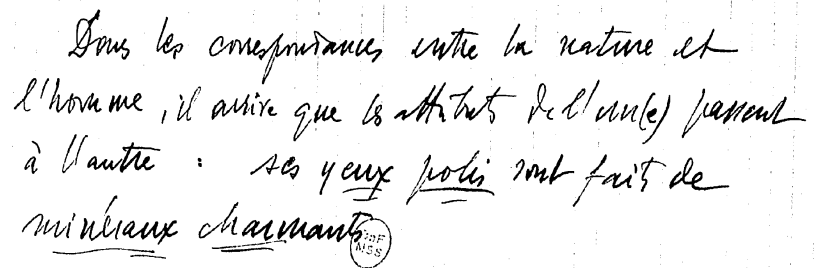 Dans les correspondances entre la nature et
l'homme, il arrive que les attributs de l'un(e) passent
à l'autre : ses yeux polis sont faits de
minéraux charmants
BnF
MSS